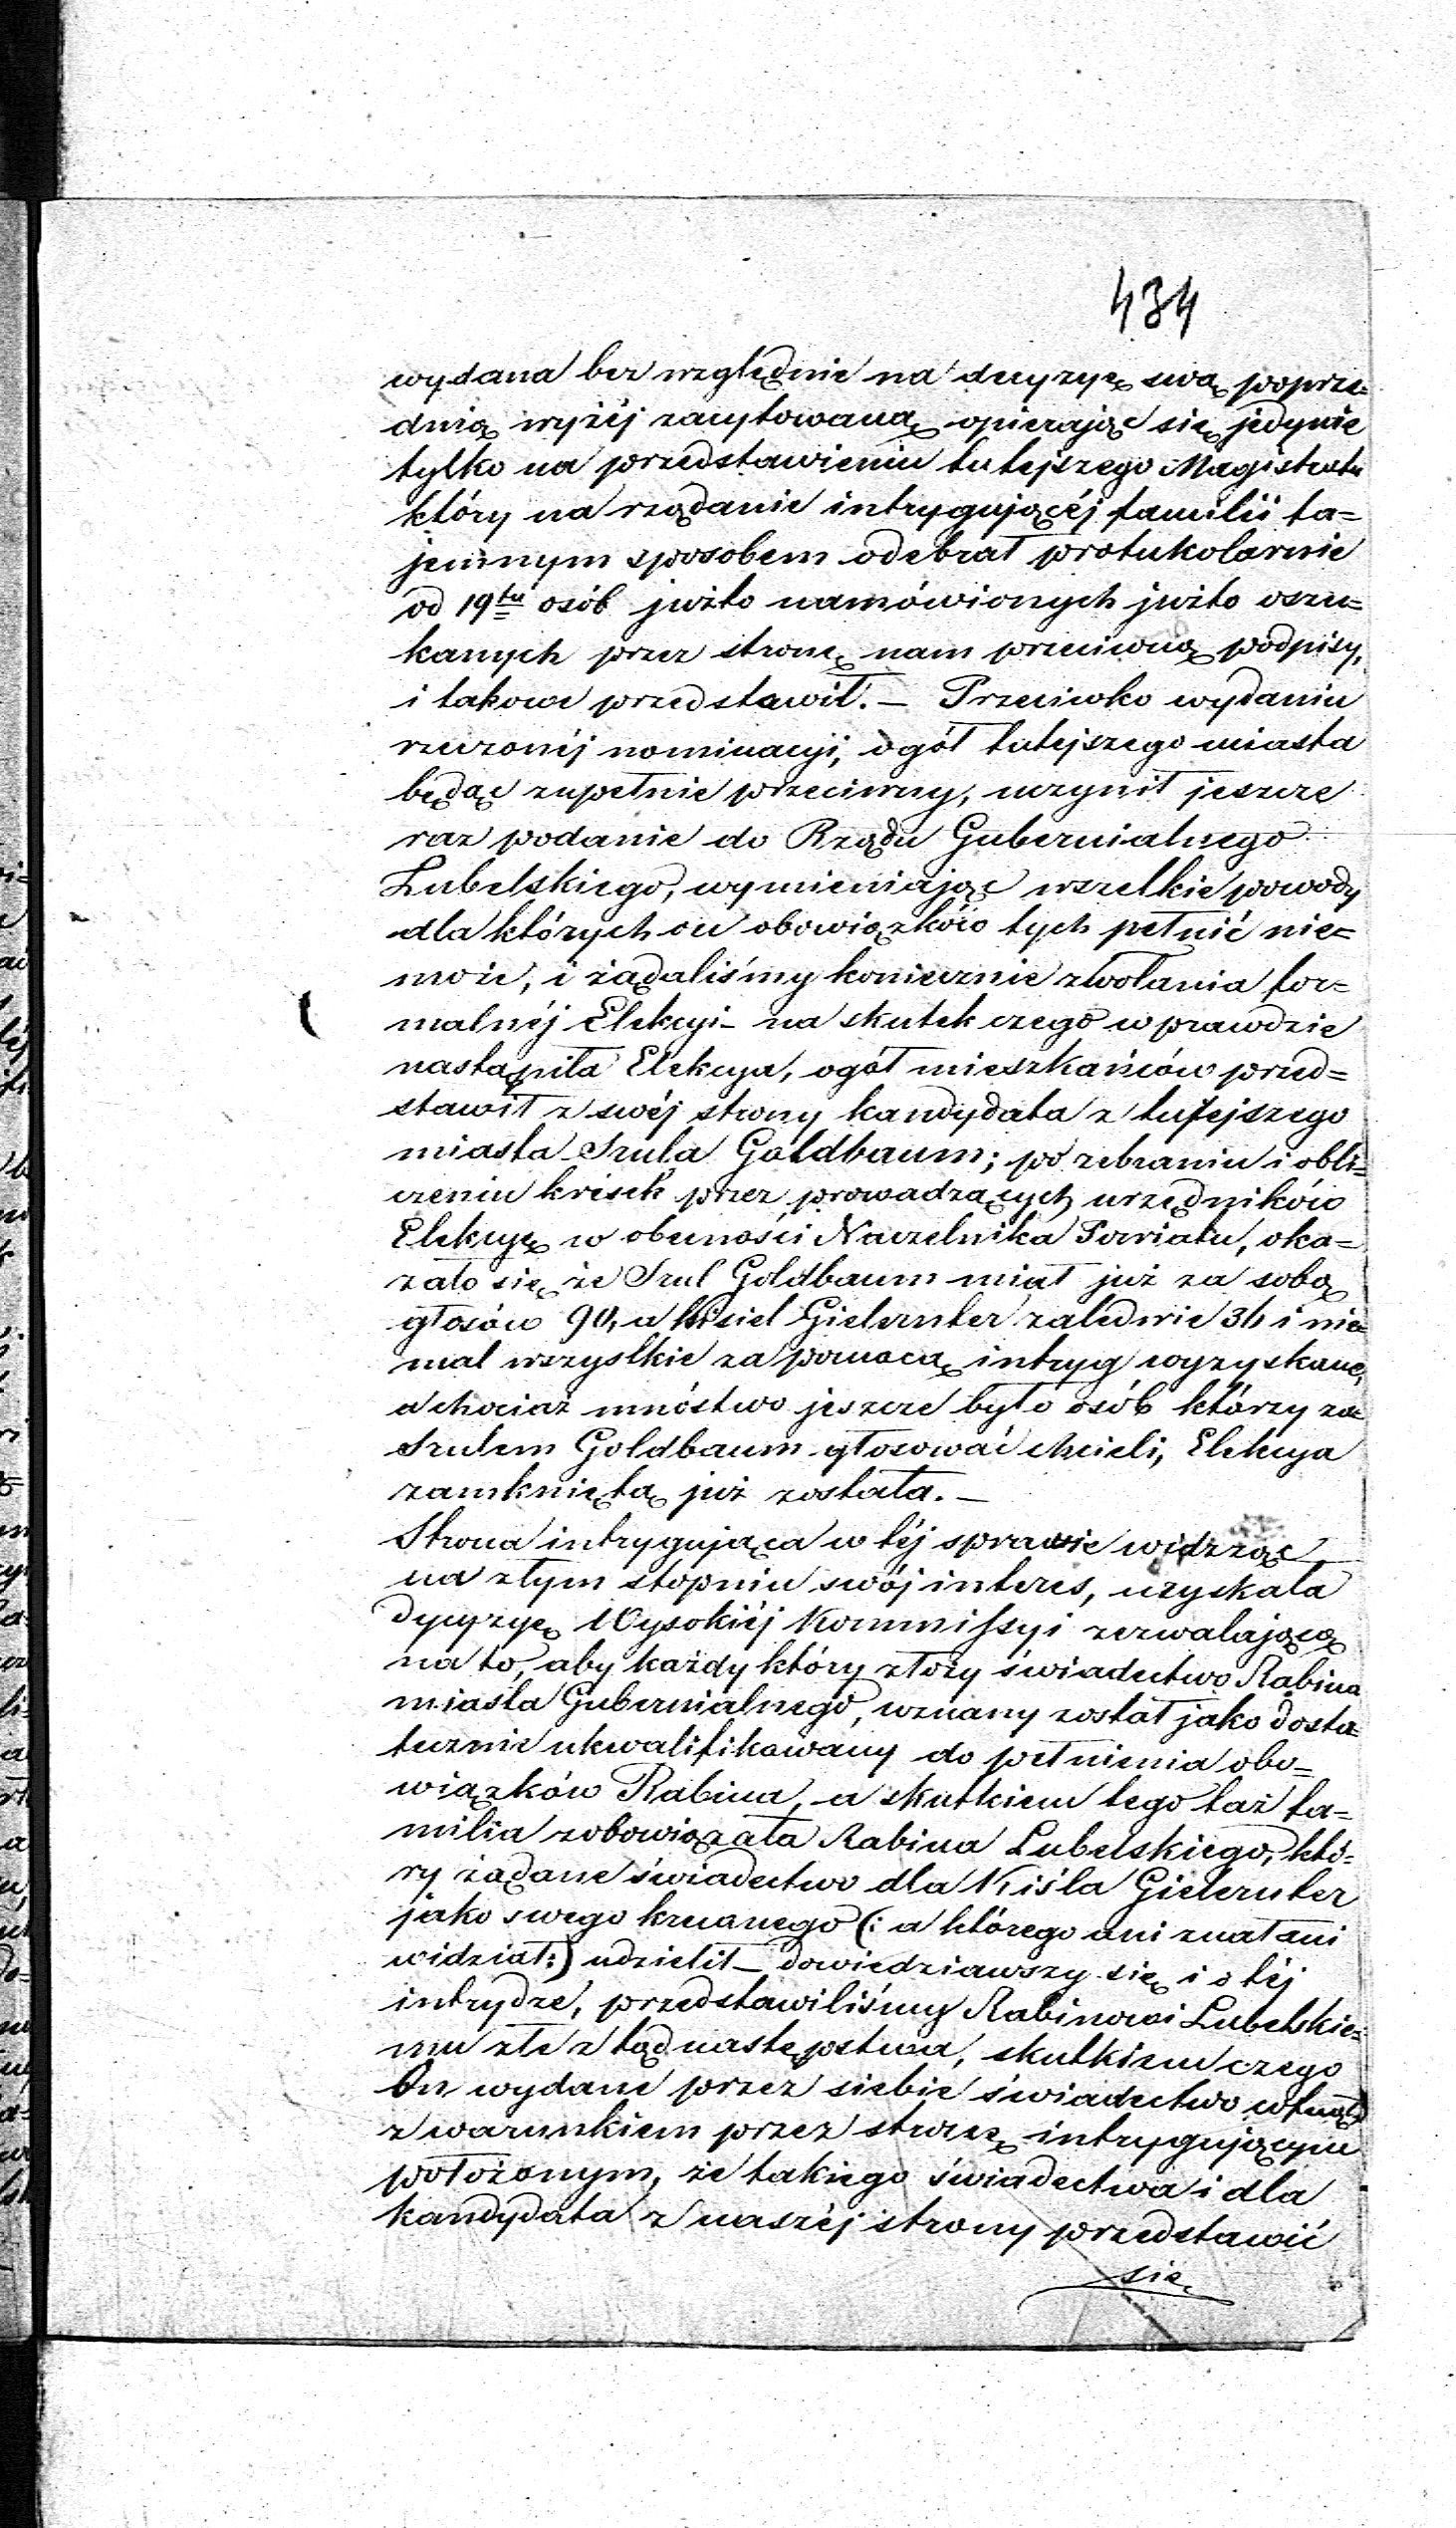 434
wydana bez względnie na decyzyę swą poprze=
dnią wyżéj zacytowaną opierając się jedynie
tylko na przedstawieniu tutejszego Magistratu
który na rządanie intrygującéj familii ta=
jemnym sposobem odebrał protukolarnie
od 19tu osób jużto namówionych jużto oszu=
kanych przez stronę nam przeciwną podpisy,
i takowe przedstawił. – Przeciwko wydaniu
rzeczonéj nominacyi, ogół tutejszego miasta
będąc zupełnie przeciwny, uczynił jeszcze
raz podanie do Rządu Gubernialnego
Lubelskiego, wymieniając wszelkie powody
dla których on obowiązków tych pełnić nie=
może, i żądaliśmy koniecznie zwołania for=
malnéj Elekcyi – na skutek czego wprawdzie
nastąpiła Elekcya, ogół mieszkańców przed=
stawił z swéj strony kandydata z tutejszego
miasta Szula Goldbaum; po zebraniu i obli=
czeniu krések przez prowadzących urzędników
Elekcyę w obecności Naczelnika Powiatu, oka=
zało się, że Szul Goldbaum miał już za sobą
głosów 90, a Kisiel Gielernter zaledwie 36 i nie=
mal wszystkie za pomocą intryg wyzyskane,
a chociaż mnóstwo jeszcze było osób którzy za
Szulem Goldbaum głosować chcieli, Elekcya
zamkniętą już została. –
Strona intrygująca w téj sprawie widząc
na złym stopniu swój interes, uzyskała
dycyzyę Wysokiéj Kommissyi zezwalającą
na to, aby każdy który złoży świadectwo Rabina
miasta Gubernialnego, uznany został jako dosta=
tecznie ukwalifikowany do pełnienia obo=
wiązków Rabina, a skutkiem tego taż fa=
milia zobowiązała Rabina Lubelskiego, któ=
ry żądane świadectwo dla Kiśla Gielernter
jako swego krewnego (: a którego ani znał ani
widział :) udzielił – dowiedziawszy się i o téj
intrydze, przedstawiliśmy Rabinowi Lubelskie=
mu złe z tąd następstwa, skutkiem czego
On wydane przez siebie świadectwo cofnął
z warunkiem przez stronę intrygującym
położonym, że takiego świadectwa i dla
kandydata z naszéj strony przedstawić
się